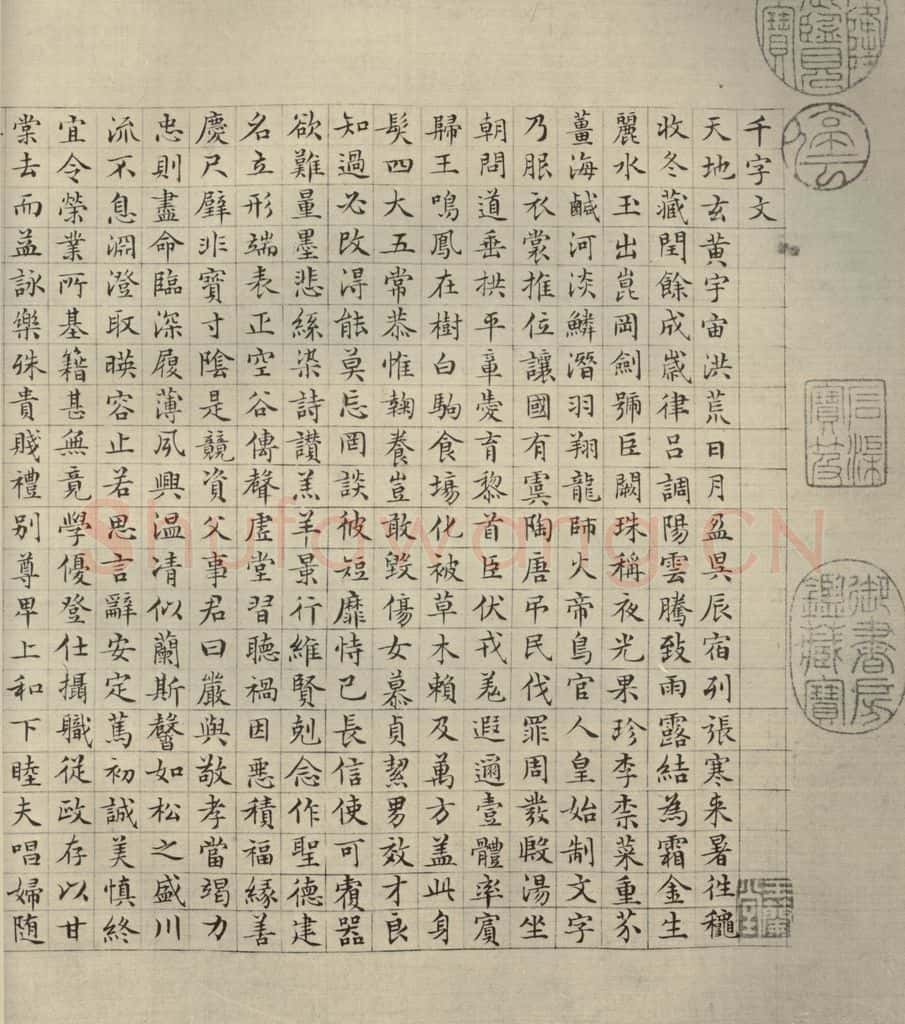 千字文
天地玄黃宇宙洪荒日月盈昃辰宿列張寒来暑往穐
收冬藏閏餘成歲律呂調陽雲騰致雨露結為霜金生
麗水玉出崑岡劍號巨闕珠稱夜光果珍李柰菜重芥
薑海鹹河淡鱗潛羽翔龍師火帝鳥官人皇始制文字
乃服衣裳推位讓國有虞陶唐弔民伐罪周發殷湯坐
朝問道垂拱平章愛育黎首臣伏戎羌遐邇壹體率賓
歸王鳴鳳在樹白駒食場化被草木賴及萬方盖此身
髮四大五常恭惟鞠養豈敢毀傷女慕貞絜男效才良
知過必改得能莫忘罔談彼短靡恃己長信使可覆器
欲難量墨悲絲染詩讚羔羊景行維賢剋念作聖德建
名立形端表正空谷傳聲虛堂習聽禍因惡積福緣善
慶尺璧非寶寸陰是競資父事君曰嚴與敬孝當竭力
忠則盡命臨深履薄夙興温凊似蘭斯馨如松之盛川
流不息淵澄取暎容止若思言辭安定篤初誠美慎終
宜令榮業所基籍甚無竟學優登仕攝職從政存以甘
棠去而益詠樂殊貴賤禮別尊卑上和下睦夫唱婦随
石渠寶笈
御書房鑑藏寶
Shufawang.CN